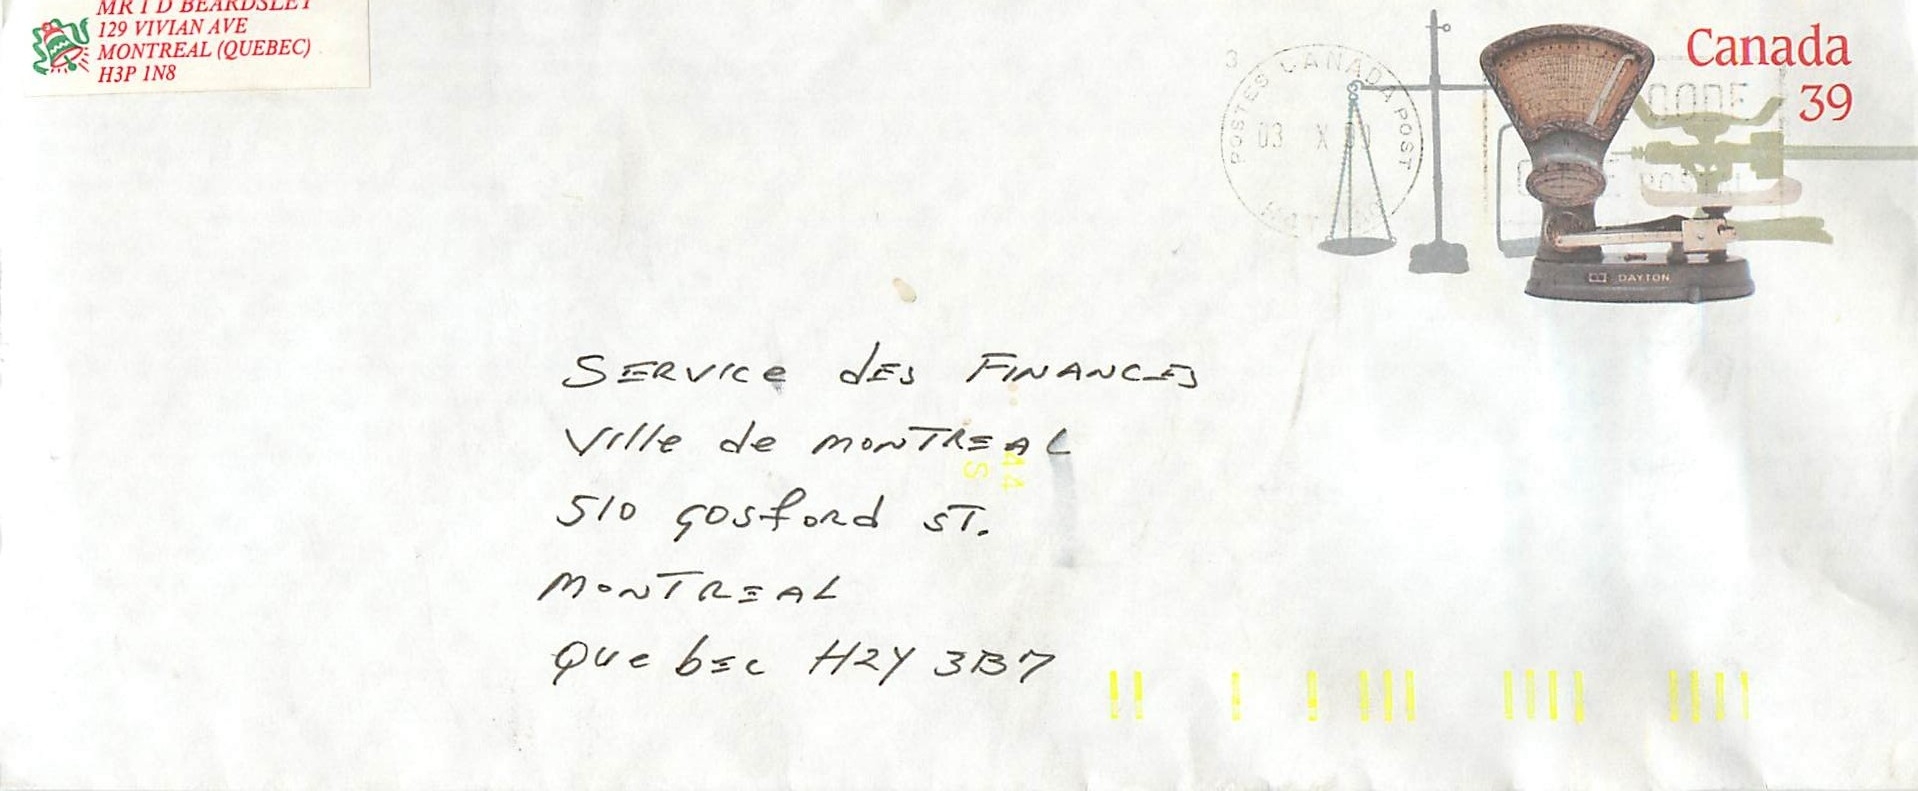 MR T D BEARDSLEY
129 VIVIAN AVE
MONTREAL (QUEBEC)
H3P 1N8
Canada
39
3
POSTES CANADA POST
03 X
CODE
POSTAL
DAYTON
SERVICE dES FINANCES
Ville de MONTREAL
510 gosford ST.
MONTREAL
Quebec H2Y 3B7
44
S